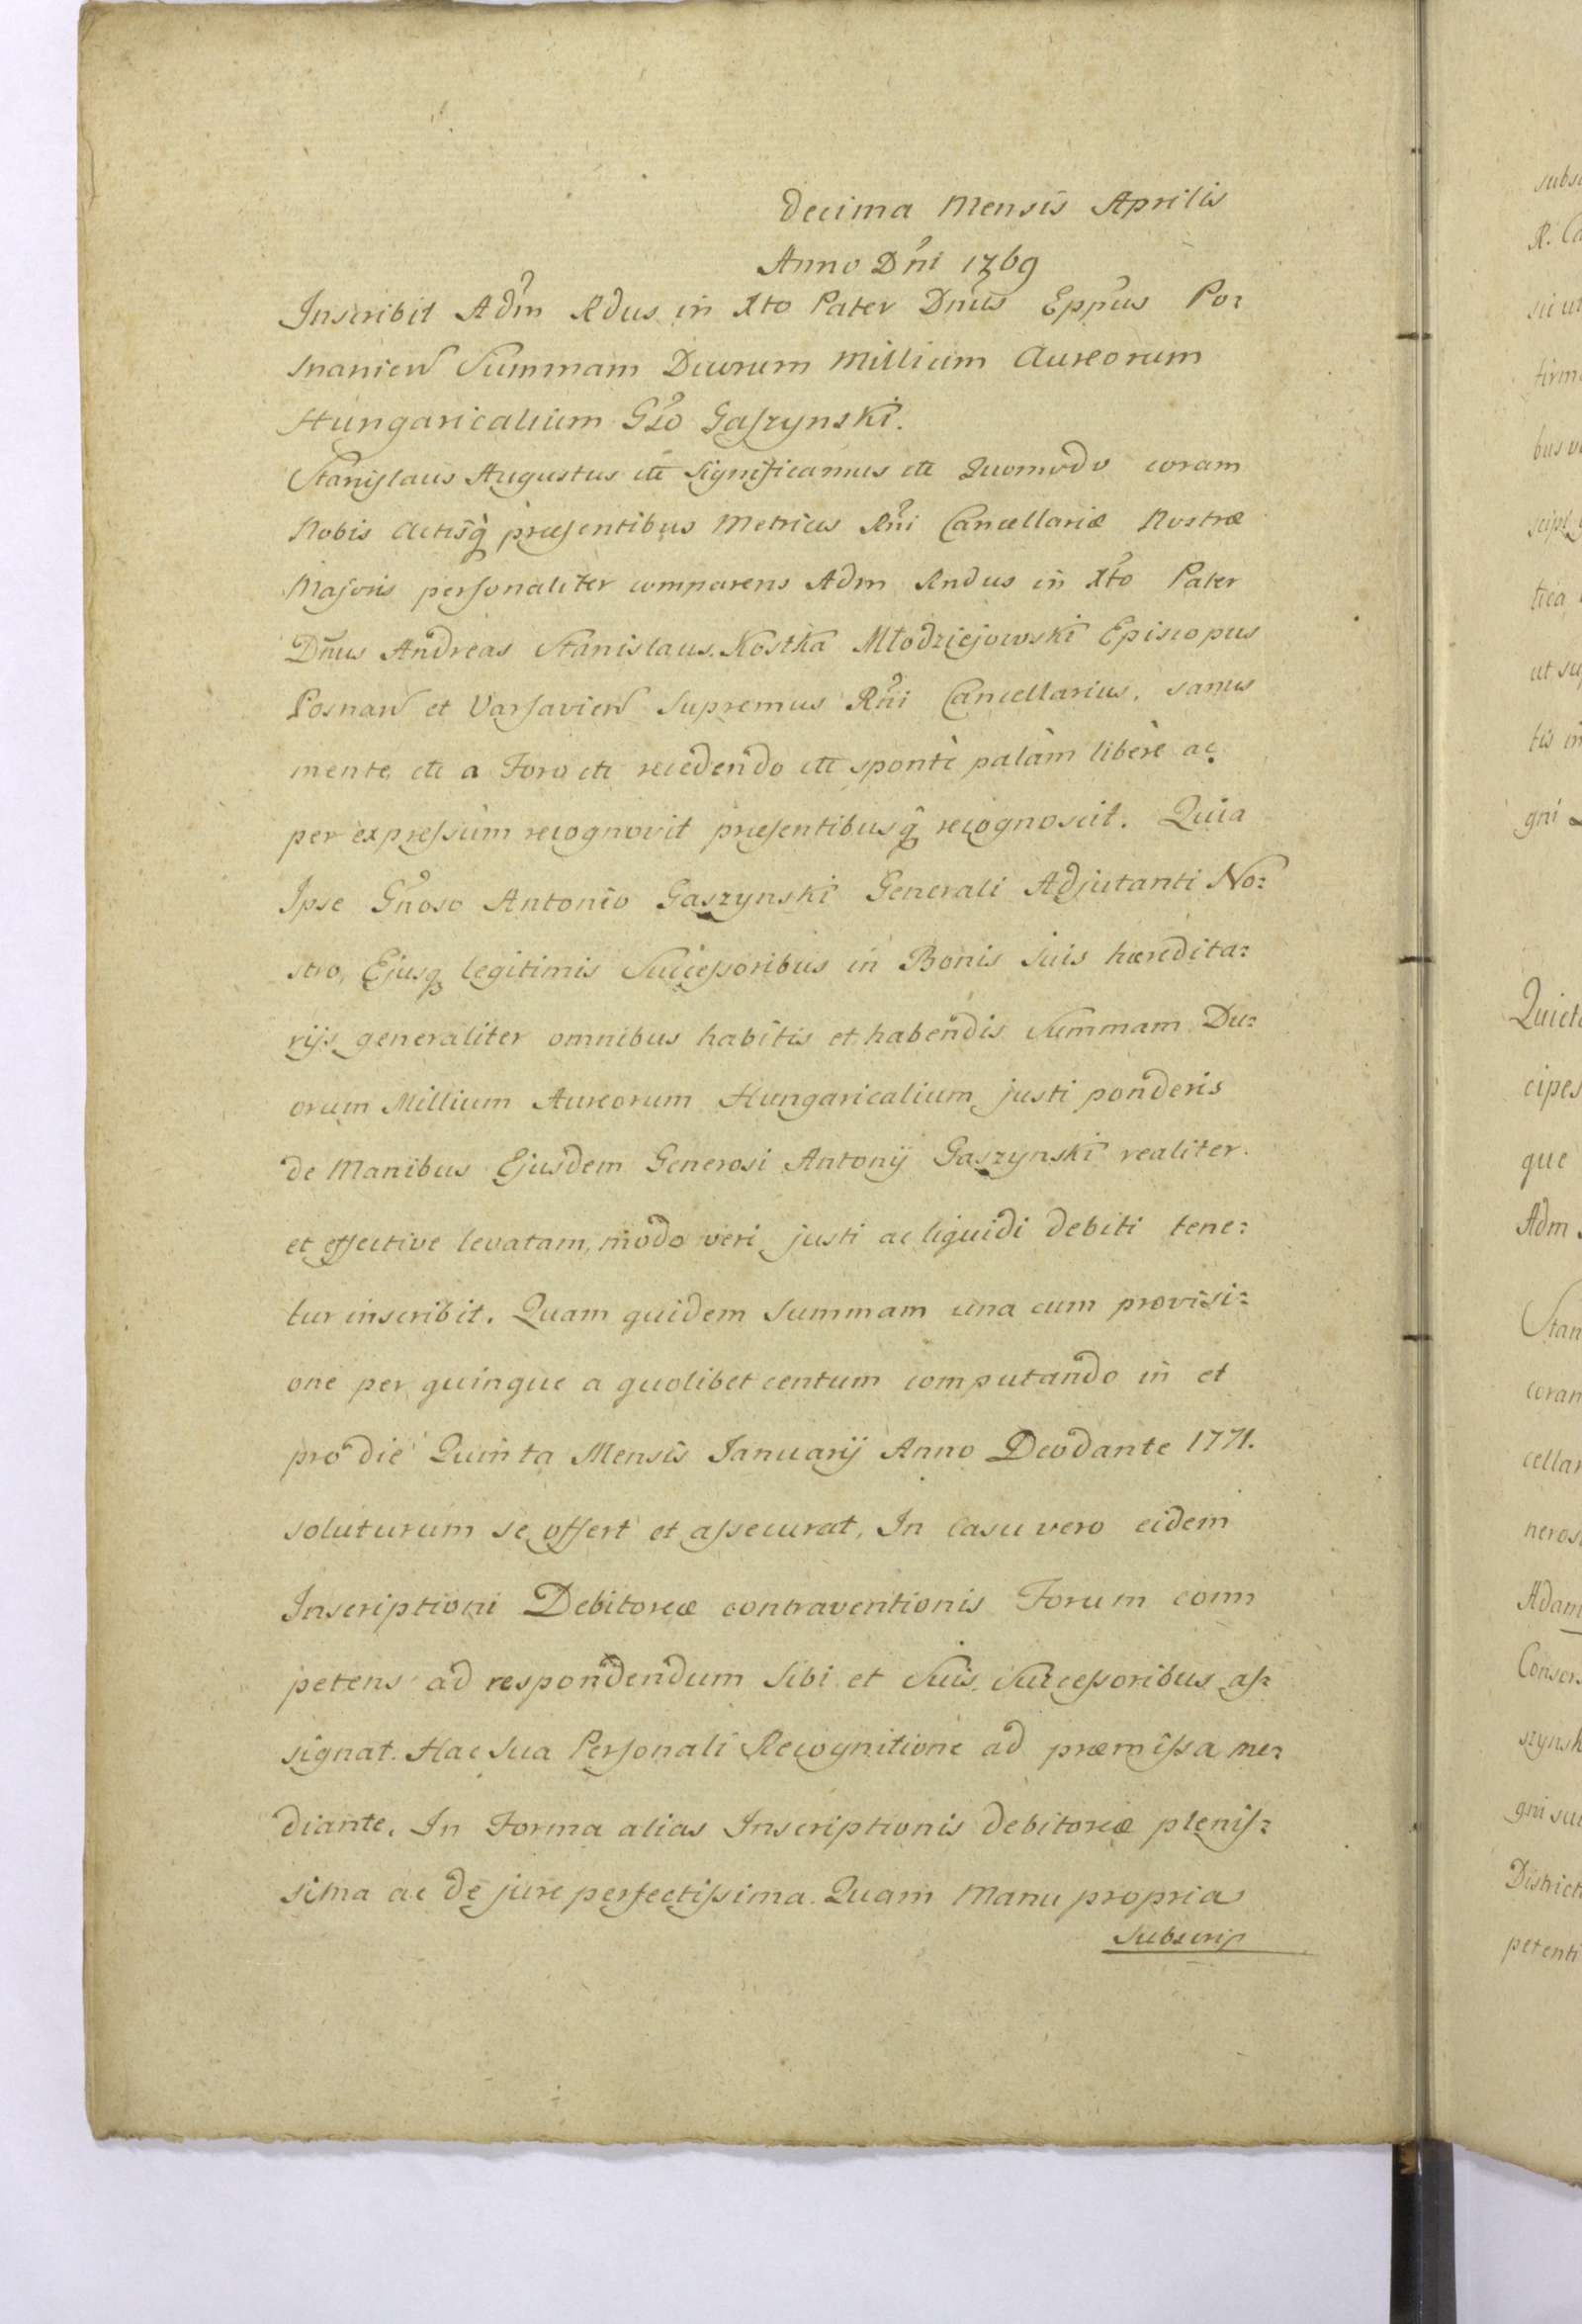 Decima Mensis Aprilis
Anno Dni 1769
Inscribit Adm Rdus in Xto Pater Dnus Eppus Po=
snanien Summam Duorum Millium Aureorum
Hungaricalium Gso Gaszynski.
Stanislaus Augustus etc Significamus etc Quomodo coram
Nobis Actisq præsentibus Metrices Rni Cancellariæ Nostræ
Majoris personaliter comparens Adm Rndus in Xto Pater
Dnus Andreas Stanislaus Kostka Młodziejowski Episcopus
Posnan et Varsavien Supremus Rni Cancellarius, sanus
mente etc a Foro etc recedendo etc spontè palàm liberè ac
per expressum recognovit præsentibusq recognoscit. Quia
Ipse Gnoso Antonio Gaszynski Generali Adjutanti No=
stro, Ejusq legitimis Successoribus in Bonis suis hæredita=
rijs generaliter omnibus habitis et habendis Summam Du=
orum Millium Aureorum Hungaricalium justi ponderis
de Manibus Ejusdem Generosi Antonij Gaszynski realiter
et effective levatam, modo veri justi ac liquidi debiti tene=
tur inscribit. Quam quidem Summam una cum provisi=
one per quinque a quolibet centum computando in et
pro die Quinta Mensis Januarij Anno Deo dante 1771.
soluturum se offert et assecurat, In Casu vero eidem
Inscriptioni Debitoreæ contraventionis Forum com
petens ad respondendum Sibi et Suis Successoribus as=
signat. Hac Sua Personali Recognitione ad præmissa me=
diante. In Forma alias Inscriptionis debitoreæ plenis=
sima ac de jure perfectissima. Quam Manu propria
Subscrip